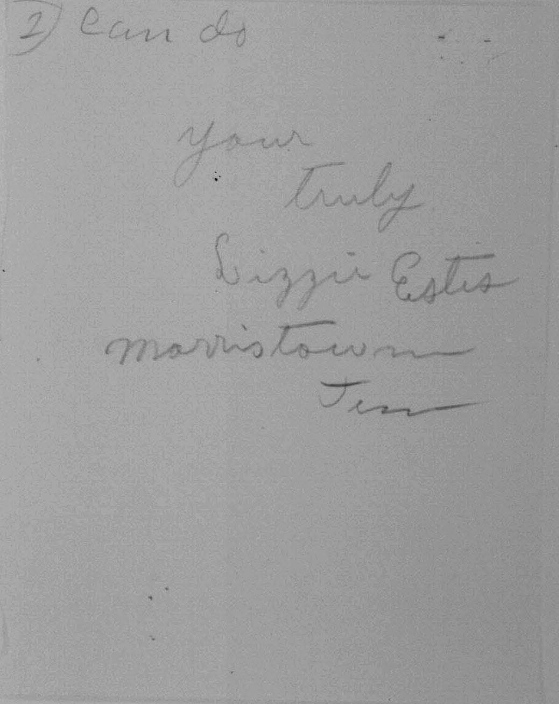 2) can do
your
truly
Lizzie Estis
Morristown
Ten